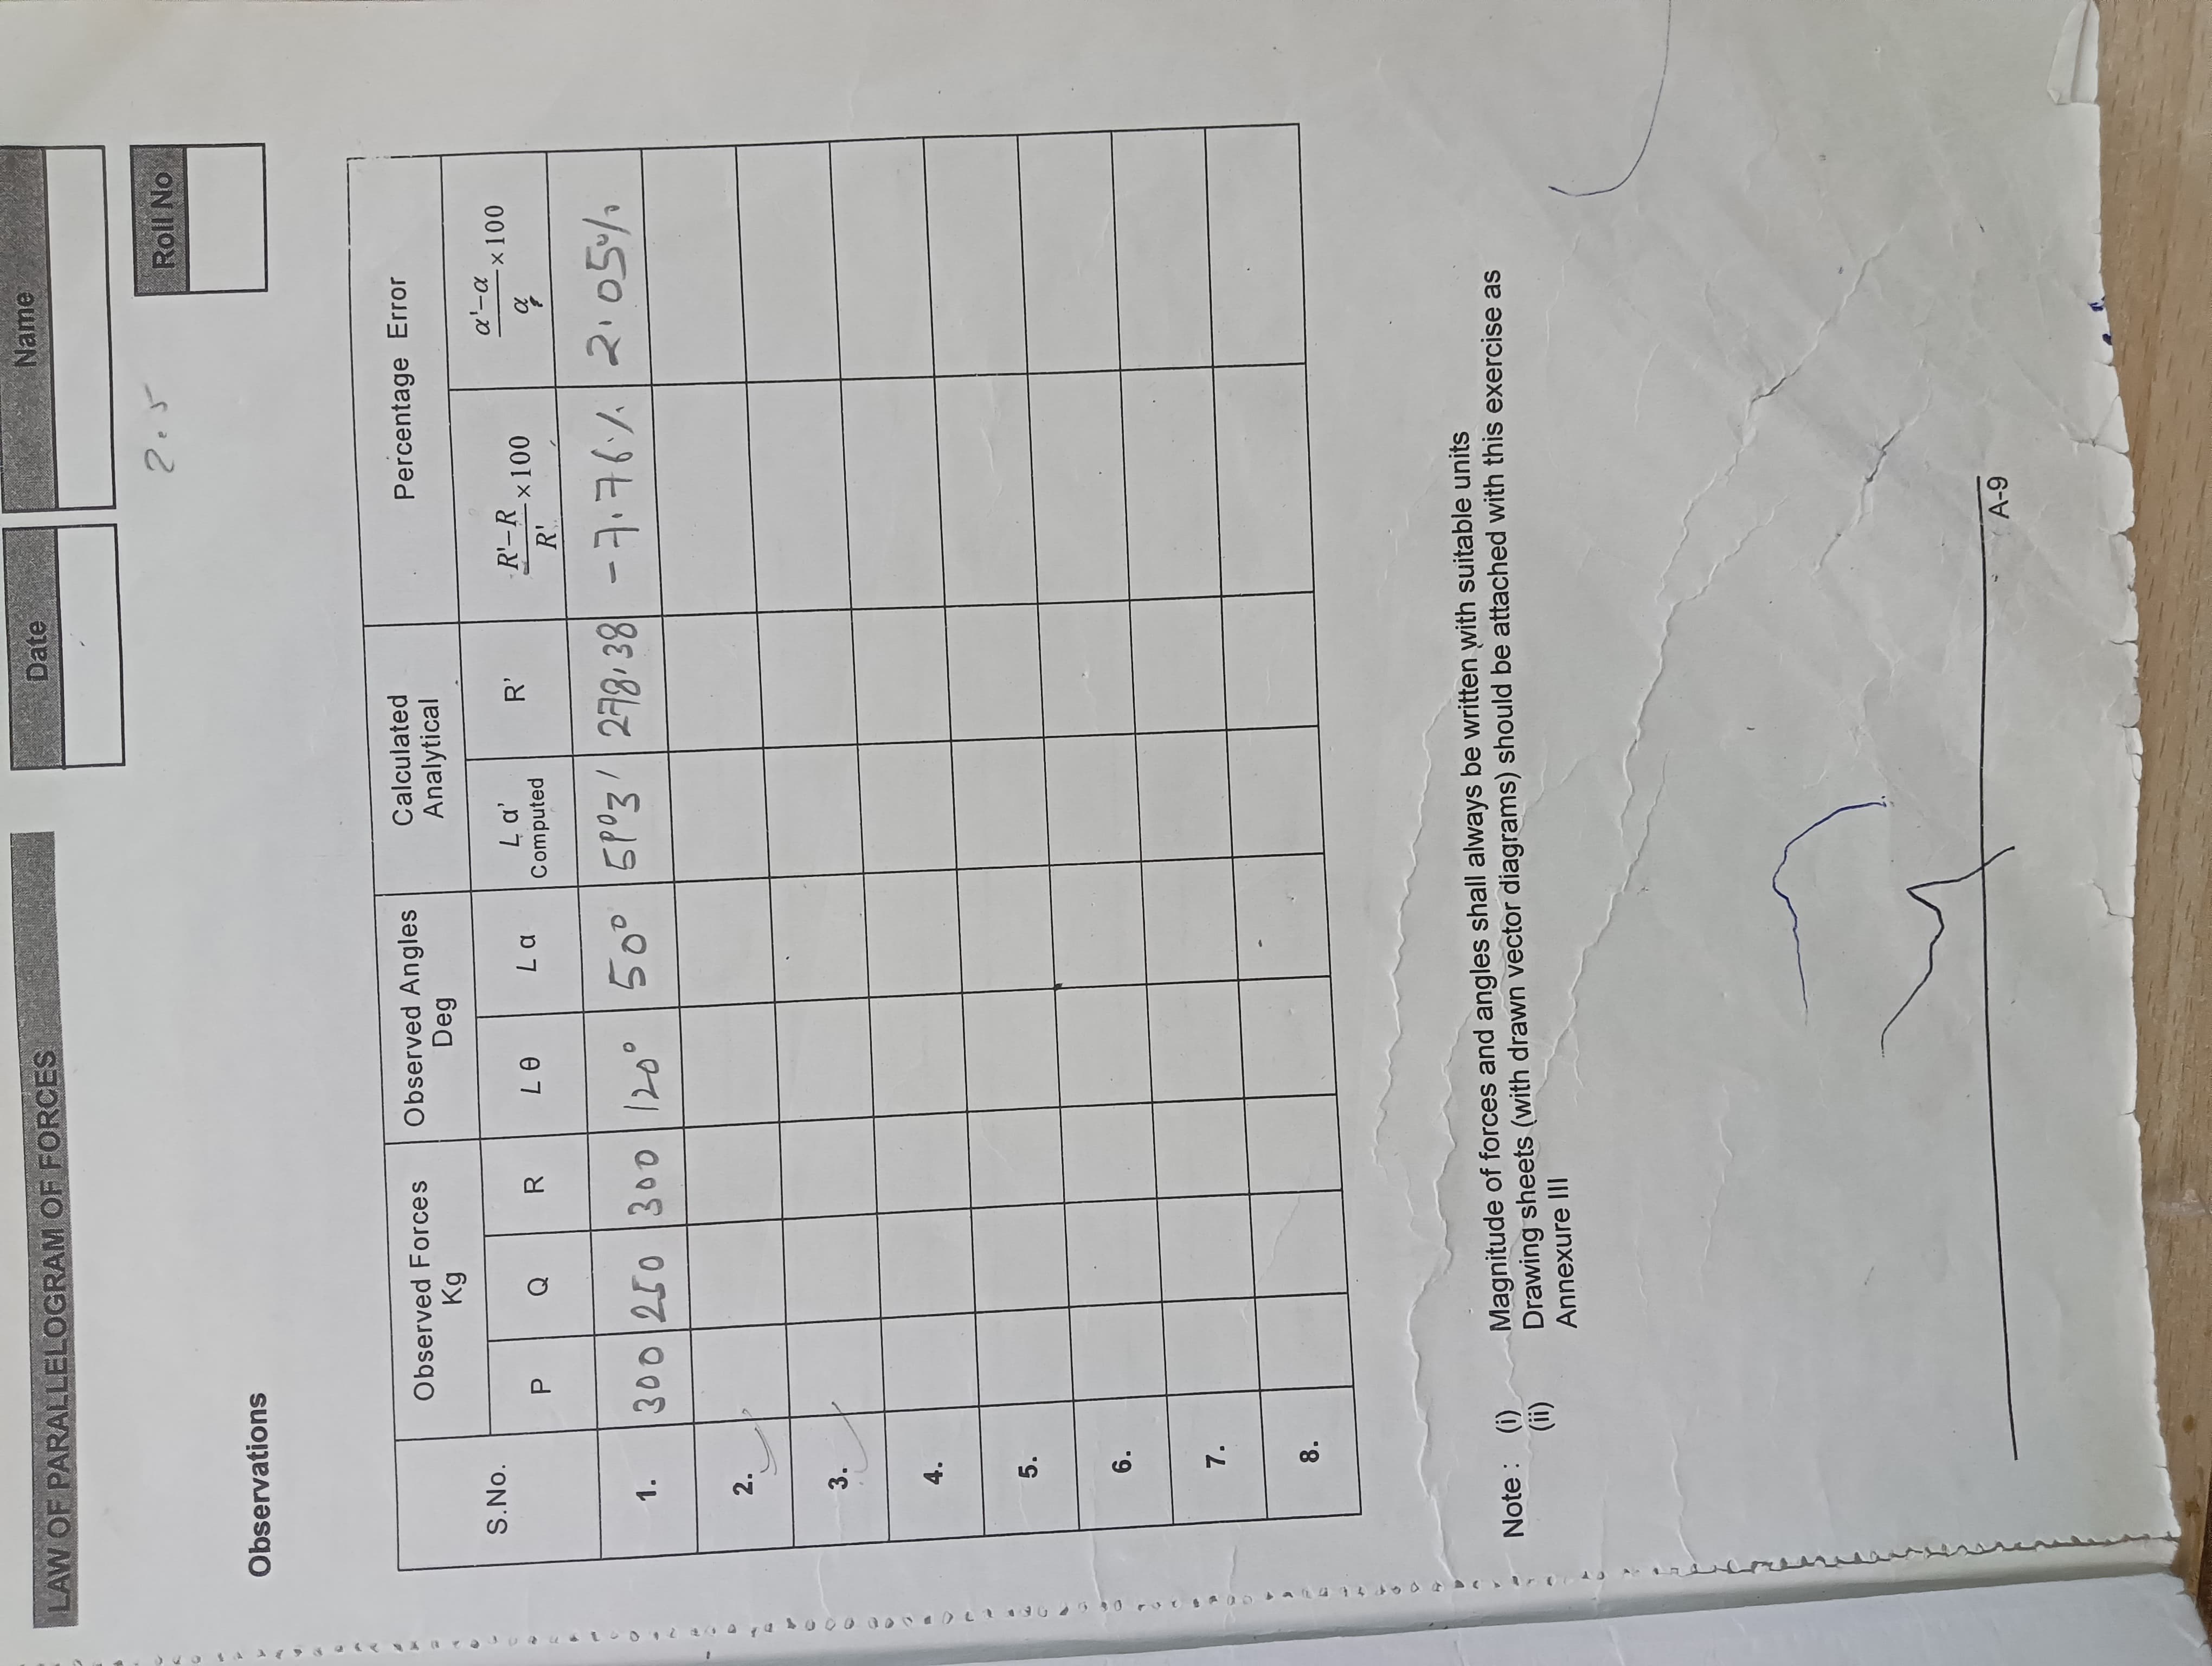 LAW OF PARALLELOGRAM OF FORCES
Date
Name
2.5
Roll No
Observations
S.No.
Observed Forces
Kg
Observed Angles
Deg
Calculated
Analytical
Percentage Error
P
Q
R
L θ
L α
L α'
Computed
R'
R'–R / R' ×100
α'–α / α ×100
1. 300 250 300 120° 50° 51°3' 278.38 -7.76% 2.05%
2.
3.
4.
5.
6.
7.
8.
Note : (i) Magnitude of forces and angles shall always be written with suitable units
(ii) Drawing sheets (with drawn vector diagrams) should be attached with this exercise as
Annexure III
A-9